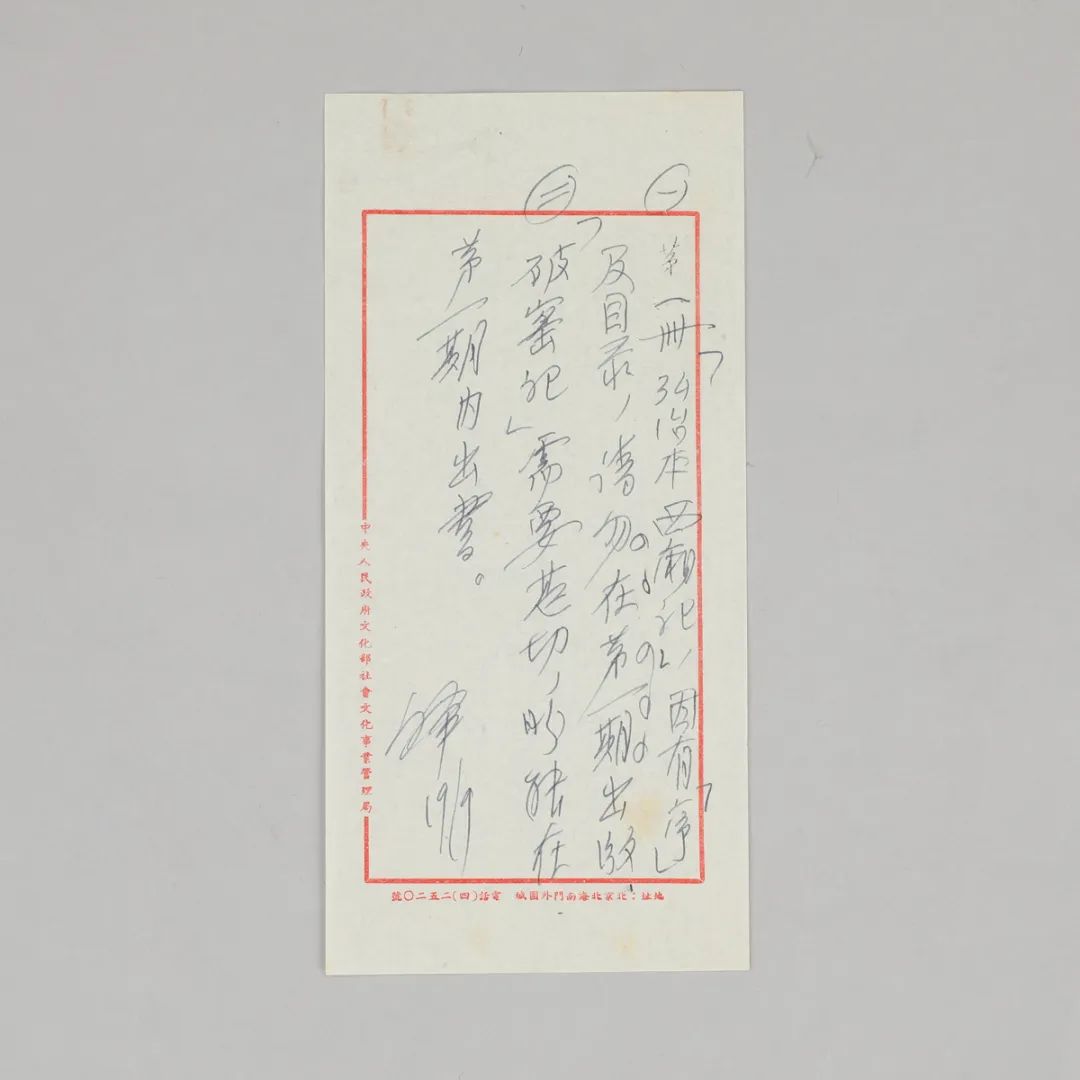 ㊀
第一册「弘治本西廂记」,因有「序」
及目录,请勿在第一期出版,
㊁
「破窑记」需要甚切,盼能在
第一期内出書。
铎
19/9
中央人民政府文化部社會文化事業管理局
地址:北京北海南門外團城 電話(四)二五二〇號